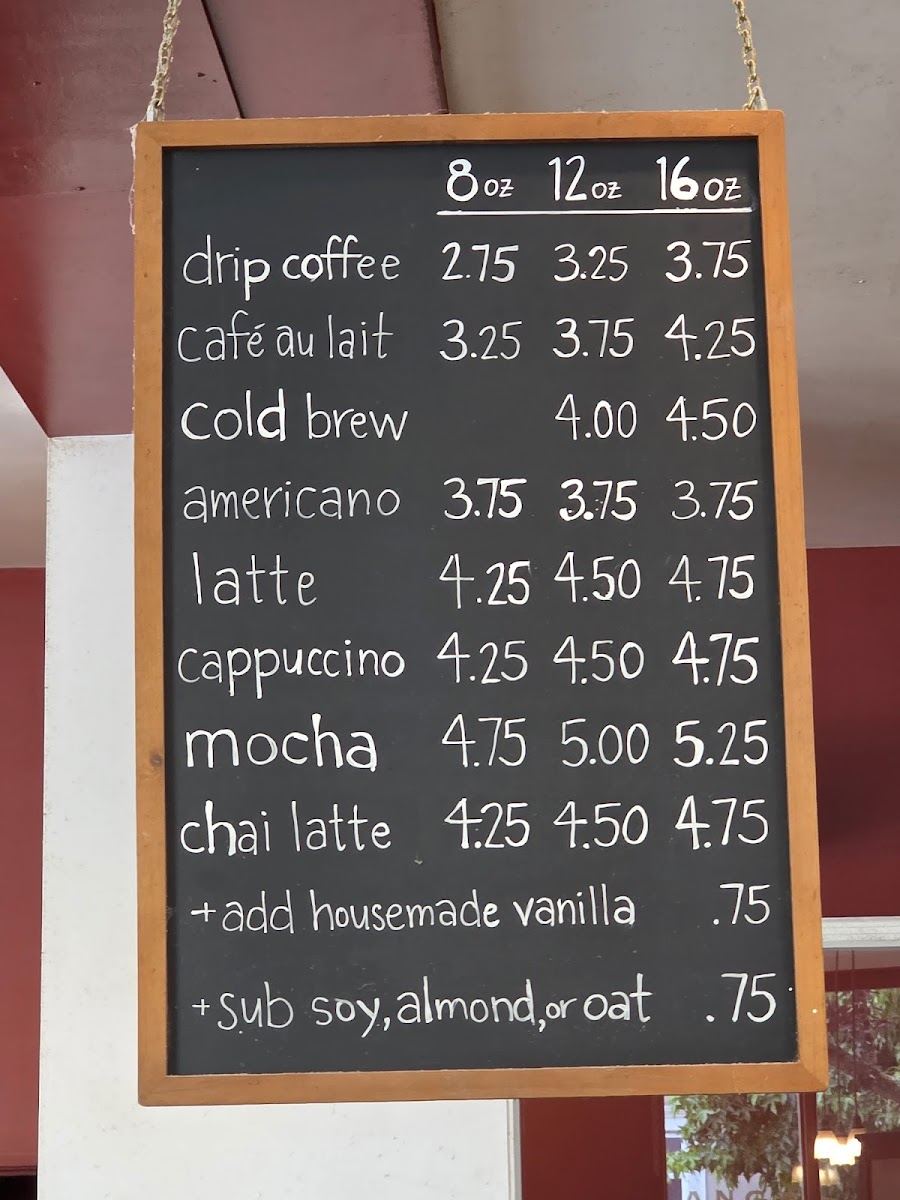 8 oz 12 oz 16 oz
drip coffee 2.75 3.25 3.75
café au lait 3.25 3.75 4.25
cold brew 4.00 4.50
americano 3.75 3.75 3.75
latte 4.25 4.50 4.75
cappuccino 4.25 4.50 4.75
mocha 4.75 5.00 5.25
chai latte 4.25 4.50 4.75
+ add housemade vanilla .75
+ sub soy, almond, or oat .75